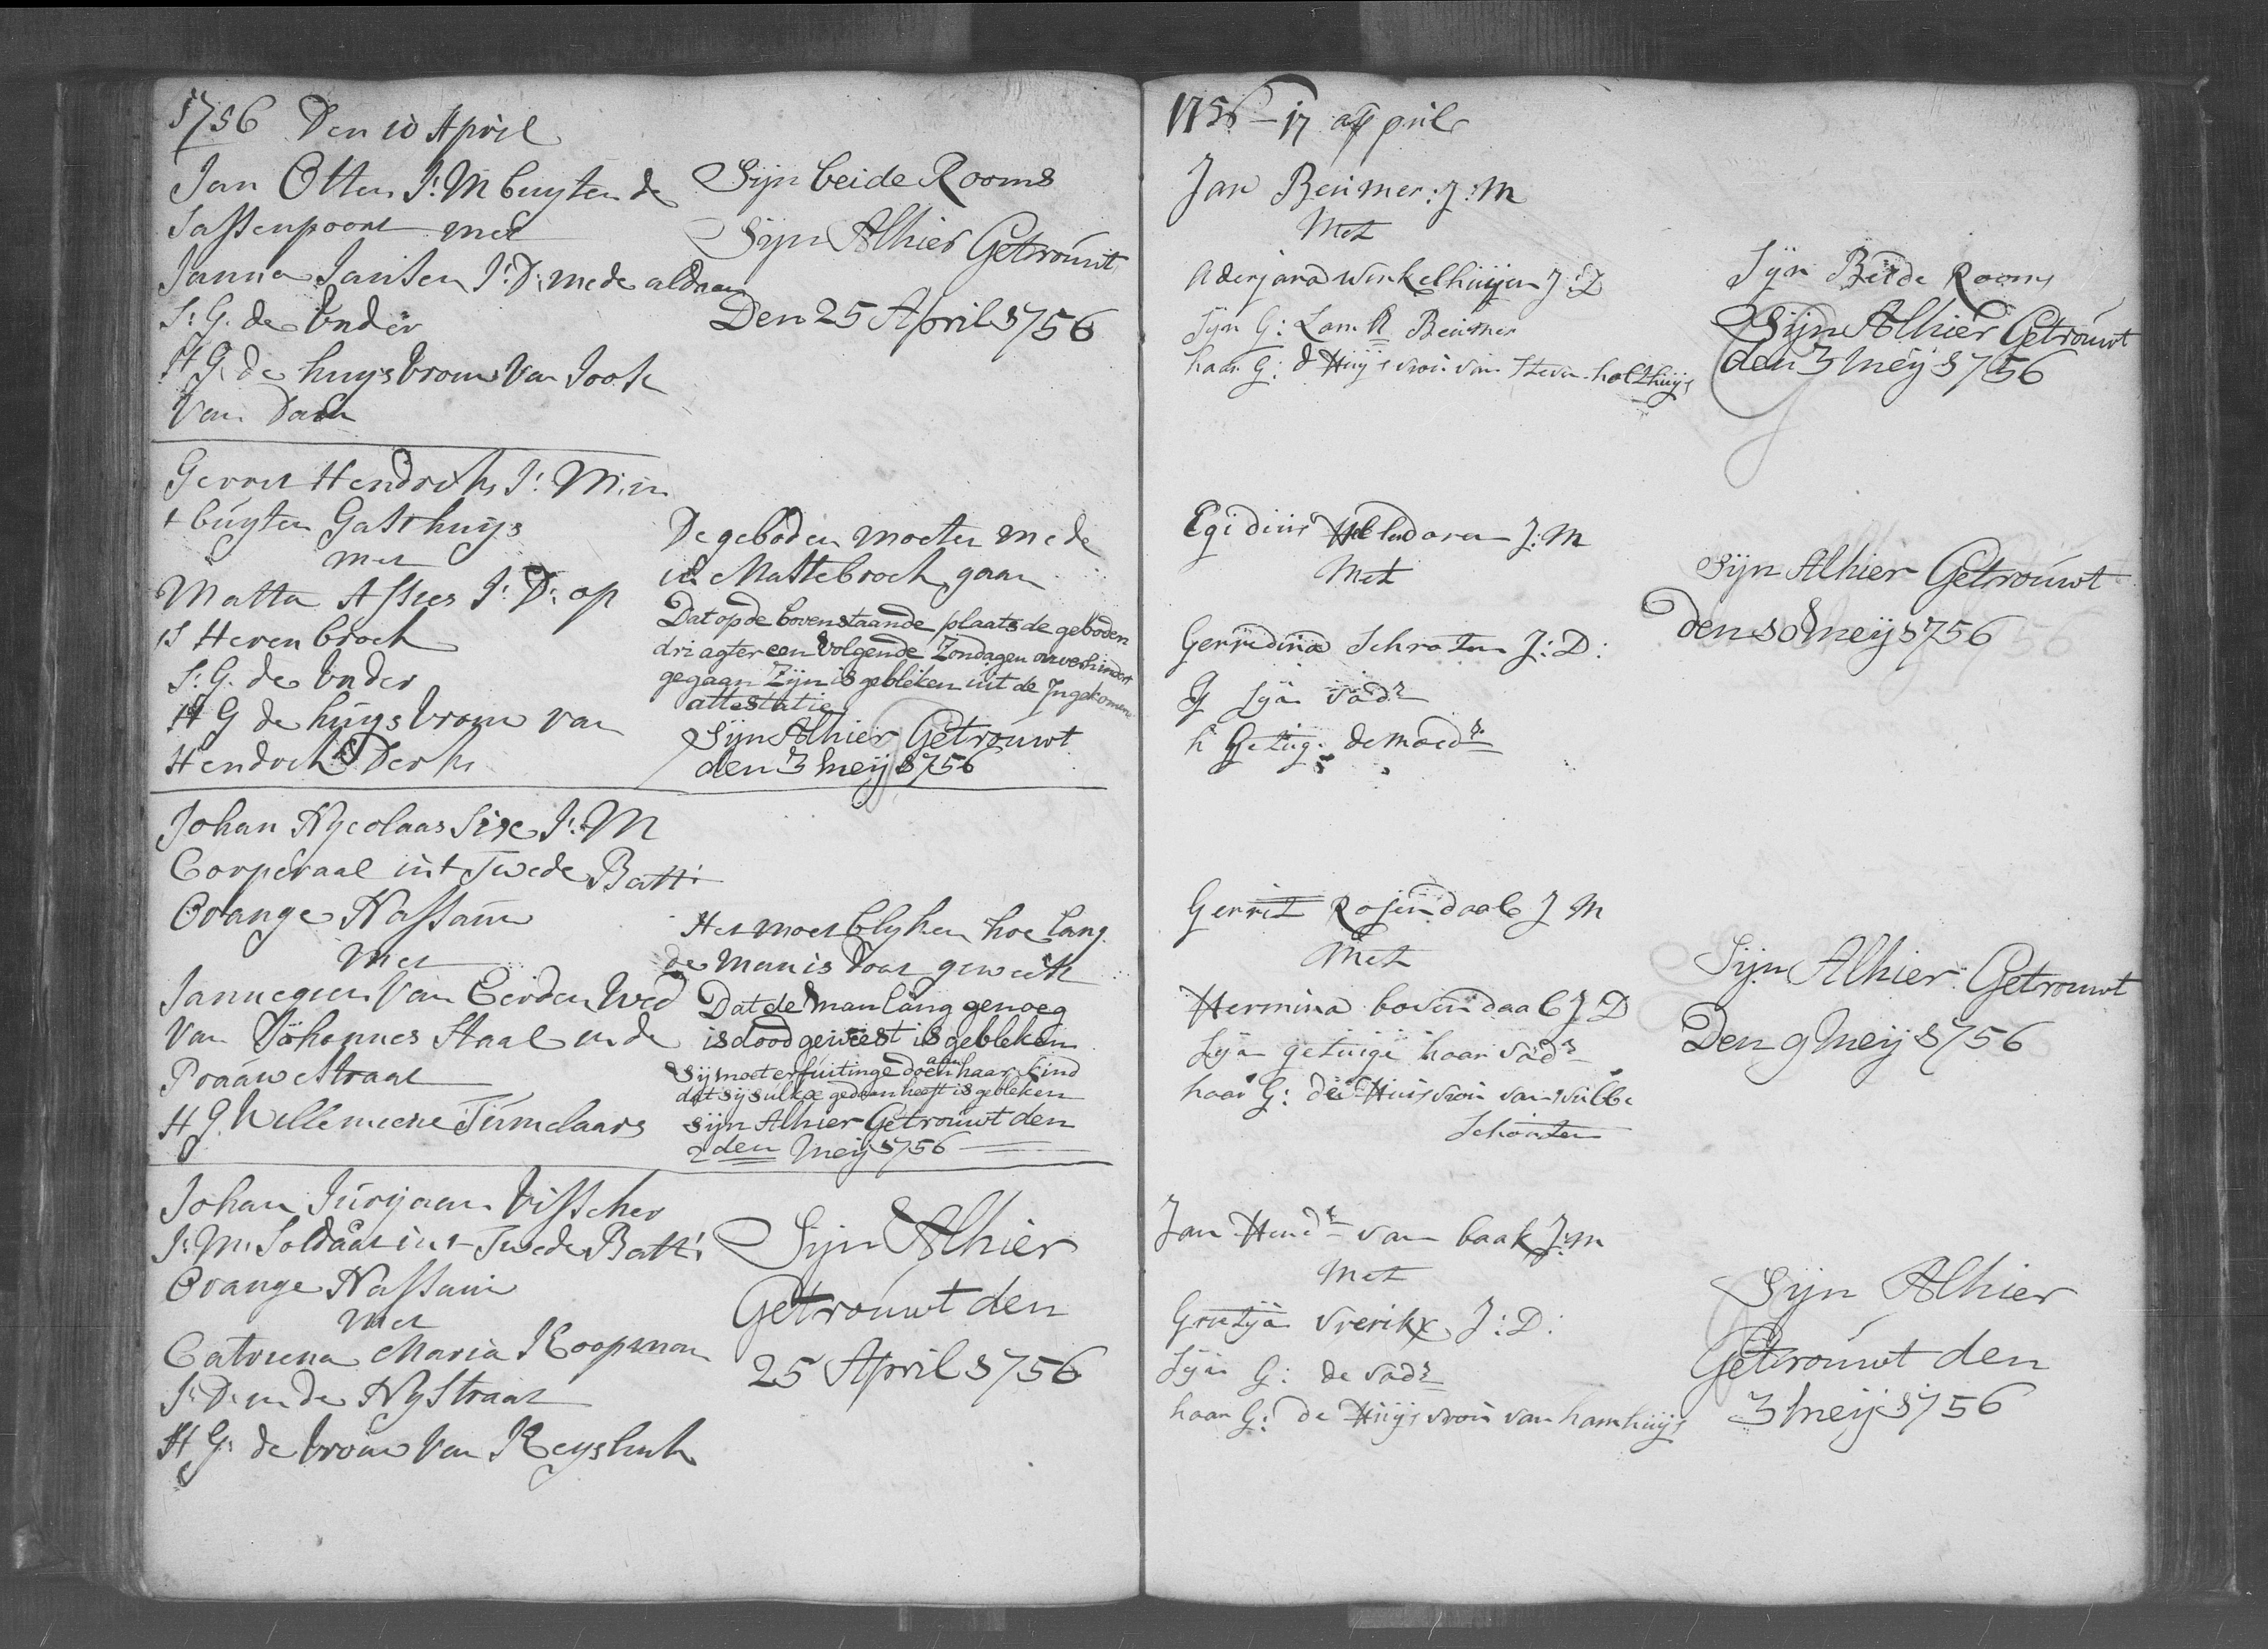 1756 Den 10 April
Jan Otten J: M buyten de
Sassenpoort met
Janna Jansen J: D: mede aldaar
S: G. de vader
H G. de huysvrouw van Joost
van Dam
Sijn beide Rooms
Sijn Alhier Getrouwt
Den 25 April 1756
Gerrit Hendriks J: M: in
t buyten Gasthuys
met
Matta Assies J: D: op
S Heren broek
S: G. de vader
H G de huysvrouw van
Hendrik Derks
De geboden moeten mede
in Mastebroek gaan
Dat op de bovenstaande plaats de geboden
dri agter een volgende Zondagen onverhindert
gegaan Zijn is gebleken uit de Ingekomen
attestatie
Sijn Alhier Getrouwt
den 3 meij 1756
Johan Nycolaas Sixe J: M
Corperaal int Twede Batt:
Orange Nassauw
met
Jannegien van Eerden Wed
van Johannes Staal in de
Praauwstraat
H G. Willemiene Timelaars
Het moet blyken hoe lang
de man is doot geweest
Dat de man lang genoeg
is dood geweest is gebleken
Sij moet erfuitinge doen aan haar kind
dat sij sulkx gedaan heeft is gebleken
Sijn Alhier Getrouwt den
2 den Meij 1756
Johan Jurijaan Visscher
J: M: Soldaat int Twede Batt:
Orange Nassau
met
Catriena Maria Koopman
J: D: in de Nystraat
H G: de vrouw van
Sijn Alhier
Getrouwt den
25 April 1756
1756 - 17 april
Jan Beumer: J: M
Met
Aderjana Winkelhuijsen J: D
Sijn G: Lam Beumer
haar G: d Huijsvrou van Steven holthuijs
Sijn Beide Rooms
Sijn Alhier Getrouwt
den 3 meij 1756
Egidius J: M
Met
Gerridina Schroten J: D:
G Sijn vad:r
h Getuig: de moed:r
Sijn Alhier Getrouwt
den 10 meij 1756
Gerrit Rosendaal J M
Met
Hermina bovendaal J D
Sijn getuige haar vad:r
haar G: de Huisvrou van wilbe
Schouten
Sijn Alhier Getrouwt
Den 9 Meij 1756
Jan Hend:k van baak J: M
Met
Grietjen vrerikx J: D:
Sijn G: de vad:r
haar G: de Huijsvrou van hamhuijs
Sijn Alhier
Getrouwt den
3 meij 1756